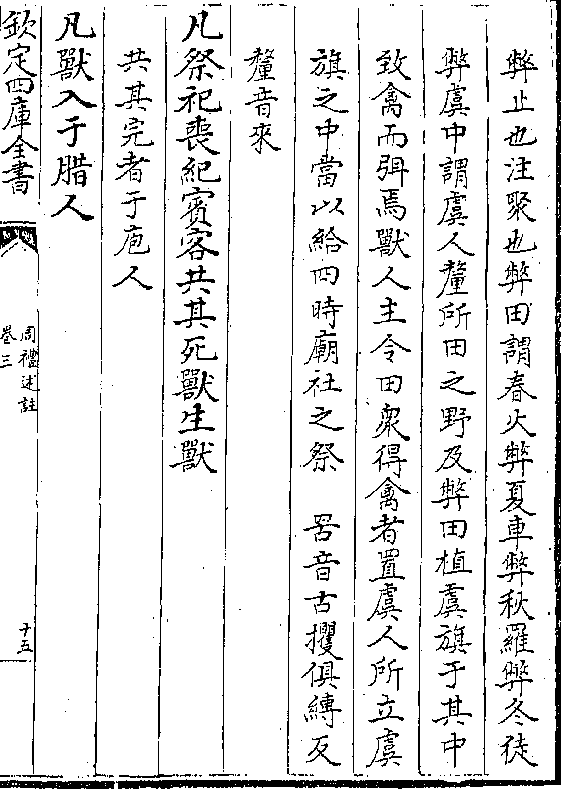 弊止也注聚也弊田謂春火弊夏車弊秋羅弊冬徒
弊虞中謂虞人釐所田之野及弊田植虞旗于其中
致禽而弭焉獸人主令田衆得禽者置虞人所立虞
旗之中當以給四時廟社之祭　罟音古攫俱縳反
釐音來
凡祭祀喪紀賓客共其死獸生獸
共其完者于庖人
凡獸入于腊人
欽定四庫全書
周禮述註
卷三
十五